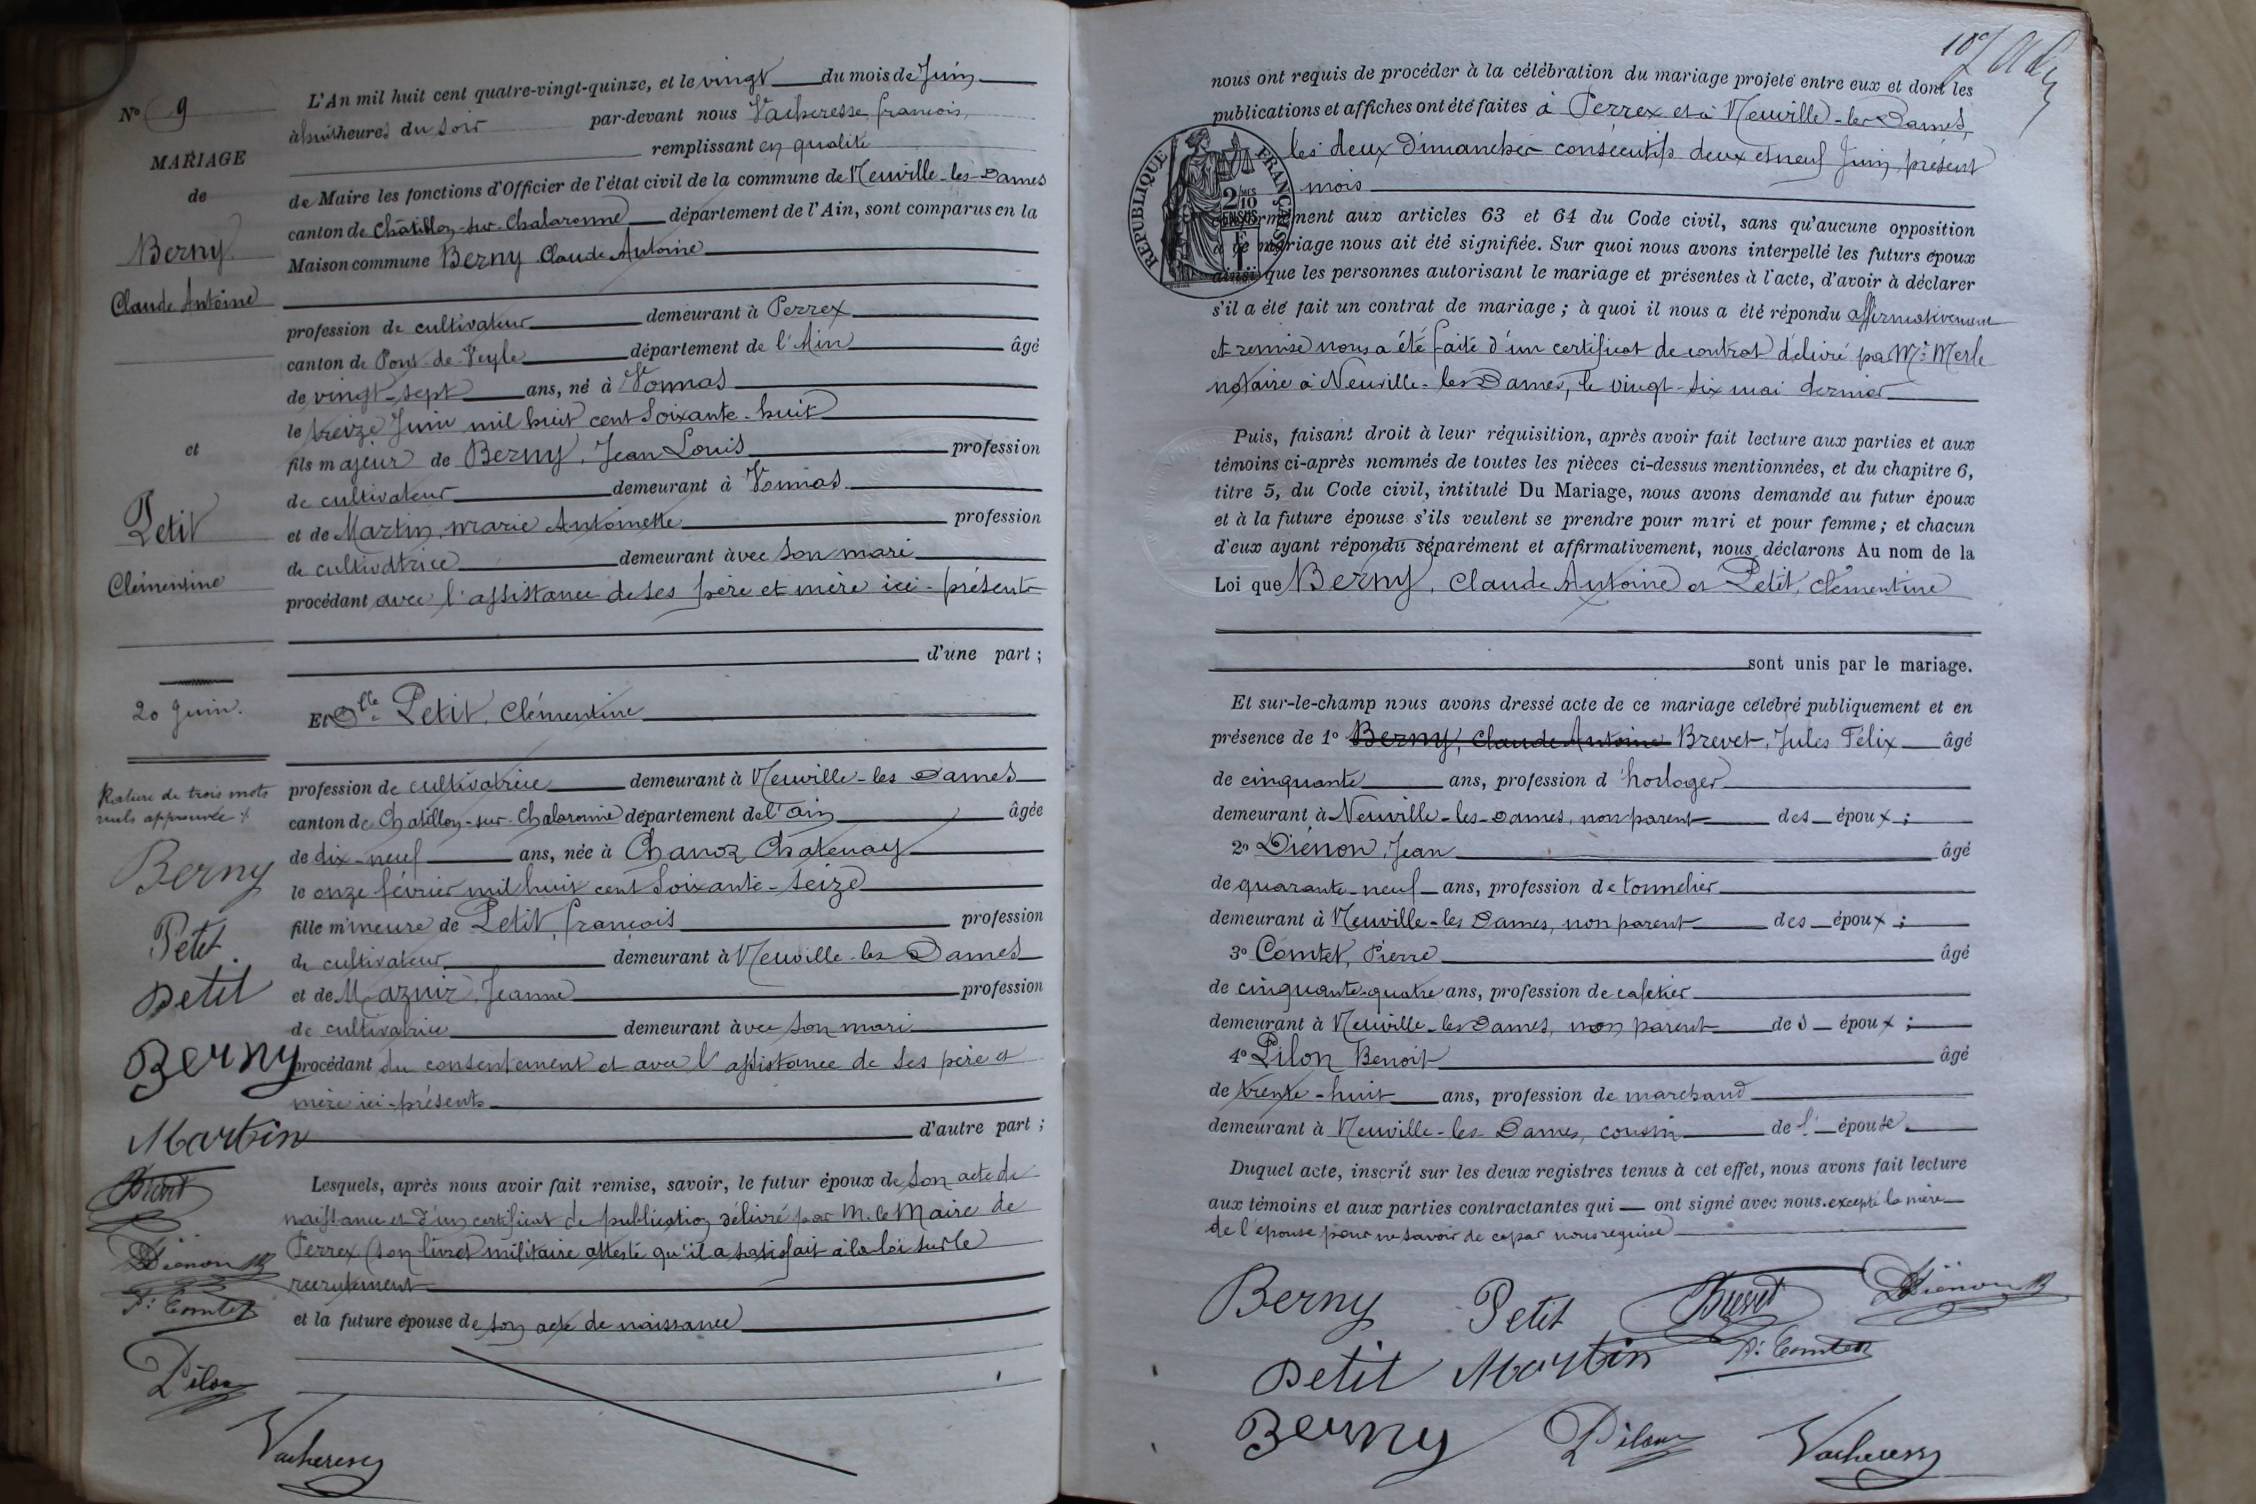 N° 9
MARIAGE
de
Berny
Claude Antoine
et
Petit
Clémentine
20 Juin.
Rature de trois mots
nuls approuvée
Berny
Petit
Petit
Berny
Martin
Brevet
Diénon
P. Comtet
Pilon
Vacheresse
L'An mil huit cent quatre-vingt-quinze, et le vingt du mois de Juin
à huit heures du soir par-devant nous Vacheresse françois,
remplissant en qualité
de Maire les fonctions d'Officier de l'état civil de la commune de Neuville-les-Dames
canton de Châtillon-sur-Chalaronne département de l'Ain, sont comparus en la
Maison commune Berny Claude Antoine
profession de cultivateur demeurant à Perrex
canton de Pont-de-Veyle département de l'Ain âgé
de vingt-sept ans, né à Vonnas
le treize Juin mil huit cent soixante-huit
fils majeur de Berny, Jean Louis profession
de cultivateur demeurant à Vonnas
et de Martin, marie Antoinette profession
de cultivatrice demeurant avec son mari
procédant avec l'assistance de ses père et mère ici-présents
d'une part ;
Et Dlle Petit, Clémentine
profession de cultivatrice demeurant à Neuville-les Dames
canton de Chatillon-sur-Chalaronne département de l'ain âgée
de dix-neuf ans, née à Chanoz Chatenay
le onze février mil huit cent soixante-seize
fille mineure de Petit, françois profession
de cultivateur demeurant à Neuville-les Dames
et de Maznir, Jeanne profession
de cultivatrice demeurant avec son mari
procédant du consentement et avec l'assistance de ses père et
mère ici-présents
d'autre part ;
Lesquels, après nous avoir fait remise, savoir, le futur époux de son acte de
naissance et d'un certificat de publication délivré par M. le Maire de
Perrex (son livret militaire atteste qu'il a satisfait à la loi sur le
recrutement
et la future épouse de son acte de naissance
nous ont requis de procéder à la célébration du mariage projeté entre eux et dont les
publications et affiches ont été faites à Perrex et à Neuville-les-Dames,
les deux Dimanches consécutifs deux et neuf Juin présent
mois
RÉPUBLIQUE FRANÇAISE
conformément aux articles 63 et 64 du Code civil, sans qu'aucune opposition
à ce mariage nous ait été signifiée. Sur quoi nous avons interpellé les futurs époux
ainsi que les personnes autorisant le mariage et présentes à l'acte, d'avoir à déclarer
s'il a été fait un contrat de mariage ; à quoi il nous a été répondu affirmativement
et remise nous a été faite d'un certificat de contrat délivré par Me Merle
notaire à Neuville-les-Dames, le vingt-six mai dernier
Puis, faisant droit à leur réquisition, après avoir fait lecture aux parties et aux
témoins ci-après nommés de toutes les pièces ci-dessus mentionnées, et du chapitre 6,
titre 5, du Code civil, intitulé Du Mariage, nous avons demandé au futur époux
et à la future épouse s'ils veulent se prendre pour mari et pour femme ; et chacun
d'eux ayant répondu séparément et affirmativement, nous déclarons Au nom de la
Loi que Berny, Claude Antoine et Petit, Clémentine
sont unis par le mariage.
Et sur-le-champ nous avons dressé acte de ce mariage célébré publiquement et en
présence de 1° Berny, Claude Antoine Brevet, Jules Félix âgé
de cinquante ans, profession d'horloger
demeurant à Neuville-les-Dames, non parent des époux ;
2° Diénon, Jean âgé
de quarante-neuf ans, profession de tonnelier
demeurant à Neuville-les Dames, non parent des époux ;
3° Comtet, Pierre âgé
de cinquante-quatre ans, profession de cafetier
demeurant à Neuville-les Dames, non parent des époux ;
4° Pilon Benoit âgé
de trente-huit ans, profession de marchand
demeurant à Neuville-les-Dames, cousin de l'épouse.
Duquel acte, inscrit sur les deux registres tenus à cet effet, nous avons fait lecture
aux témoins et aux parties contractantes qui ont signé avec nous. excepté la mère
de l'épouse pour ne savoir de ce par nous requise
Berny Petit Brevet Diénon
Petit Martin P. Comtet
Berny Pilon Vacheresse